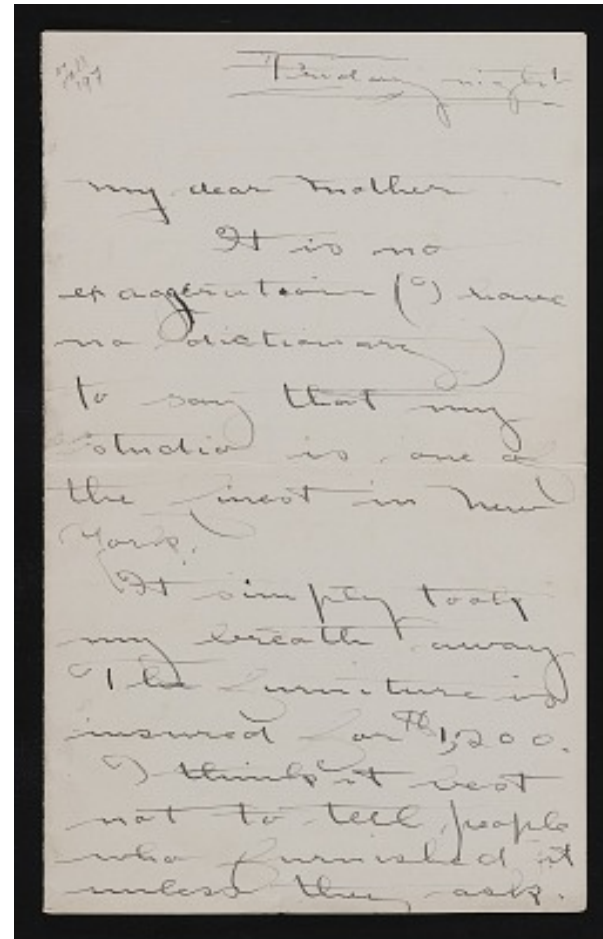 Friday night
my dear Mother
It is no
exaggeration (I have
no dictionary)
to say that my
studio is one of
the finest in New
York.
It simply took
my breath away
The furniture is
insured for $1,200.
I think it best
not to tell people
who furnished it
unless they ask.